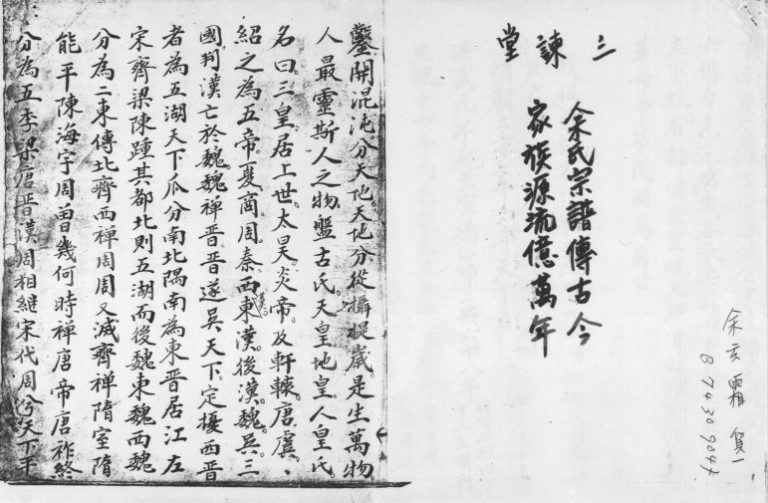 三諫堂
余氏宗譜傳古今
家族源流億萬年
余云霜
B7430904
鑿開混沌分天地天地分從攝提歲是生萬物
人最靈斯人之物盤古氏天皇地皇人皇氏
名曰三皇居上世。太昊炎帝。及軒轅。唐虞、
紹之為五帝。夏商周秦西東漢。後漢。魏。吳。三
國判漢亡於魏魏禪晋晋遂吳天下定擾西晋
者為五湖天下瓜分南北隅南為東晋居江左
宋齊梁陳踵其都北則五湖而後魏東魏西魏
分為二東傳北齊西禪周周又滅齊禪隋室隋
能平陳海宇周曾幾何時禪唐帝唐祚終
分為五季梁唐晋漢周相継宋代周兮天下平